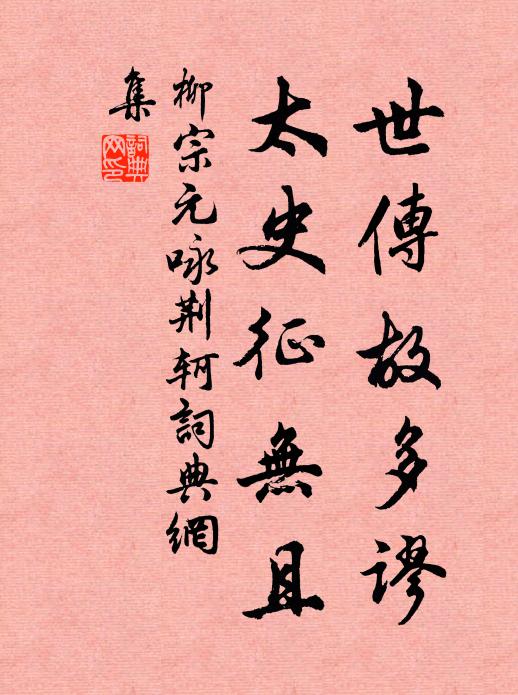 世傳故多謬
太史征無且
柳宗元咏荆轲詞典網
集
詞典網印